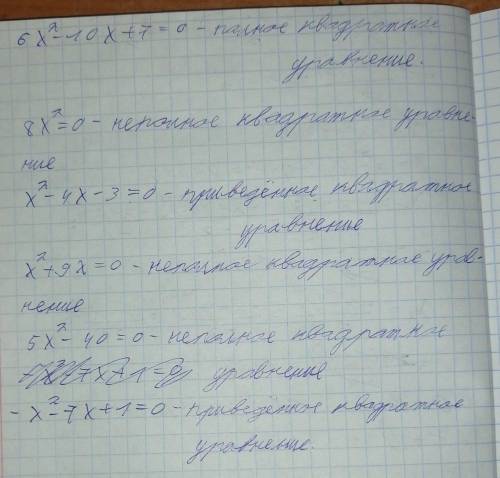 6x²-10x+7=0 - полное квадратное
уравнение.
8x²=0 - неполное квадратное уравне-
ние
x²-4x-3=0 - приведённое квадратное
уравнение
x²+9x=0 - неполное квадратное урав-
нение
5x²-40=0 - неполное квадратное
уравнение
-x²-7x+1=0 - приведённое квадратное
уравнение.